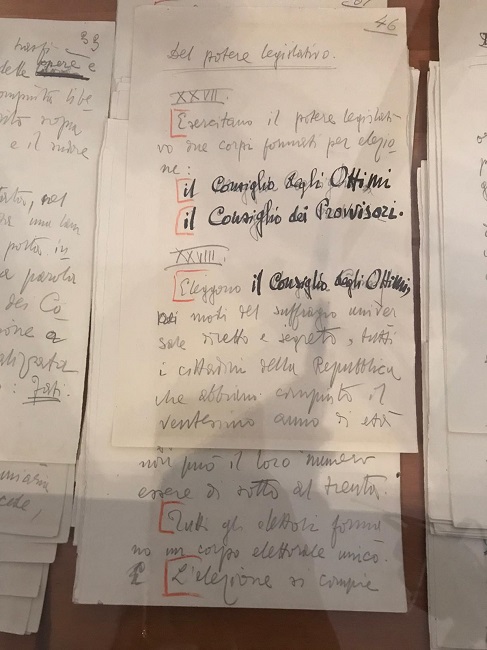 46
Del potere legislativo.
XXVII.
Esercitano il potere legislati
vo due corpi formati per elezio
ne:
il Consiglio degli Ottimi
il Consiglio dei Provvisori.
XXVIII.
Eleggono il Consiglio degli Ottimi,
nei modi del suffragio univer
sale diretto e segreto, tutti
i cittadini della Repubblica
che abbiano compiuto il
ventesimo anno di età
non può il loro numero
essere di sotto al trenta.
Tutti gli elettori forma
no un corpo elettorale unico.
L'elezione si compie
39
delle opere e
e il
una
posta in
a parola
des Co
one a
: Fati.